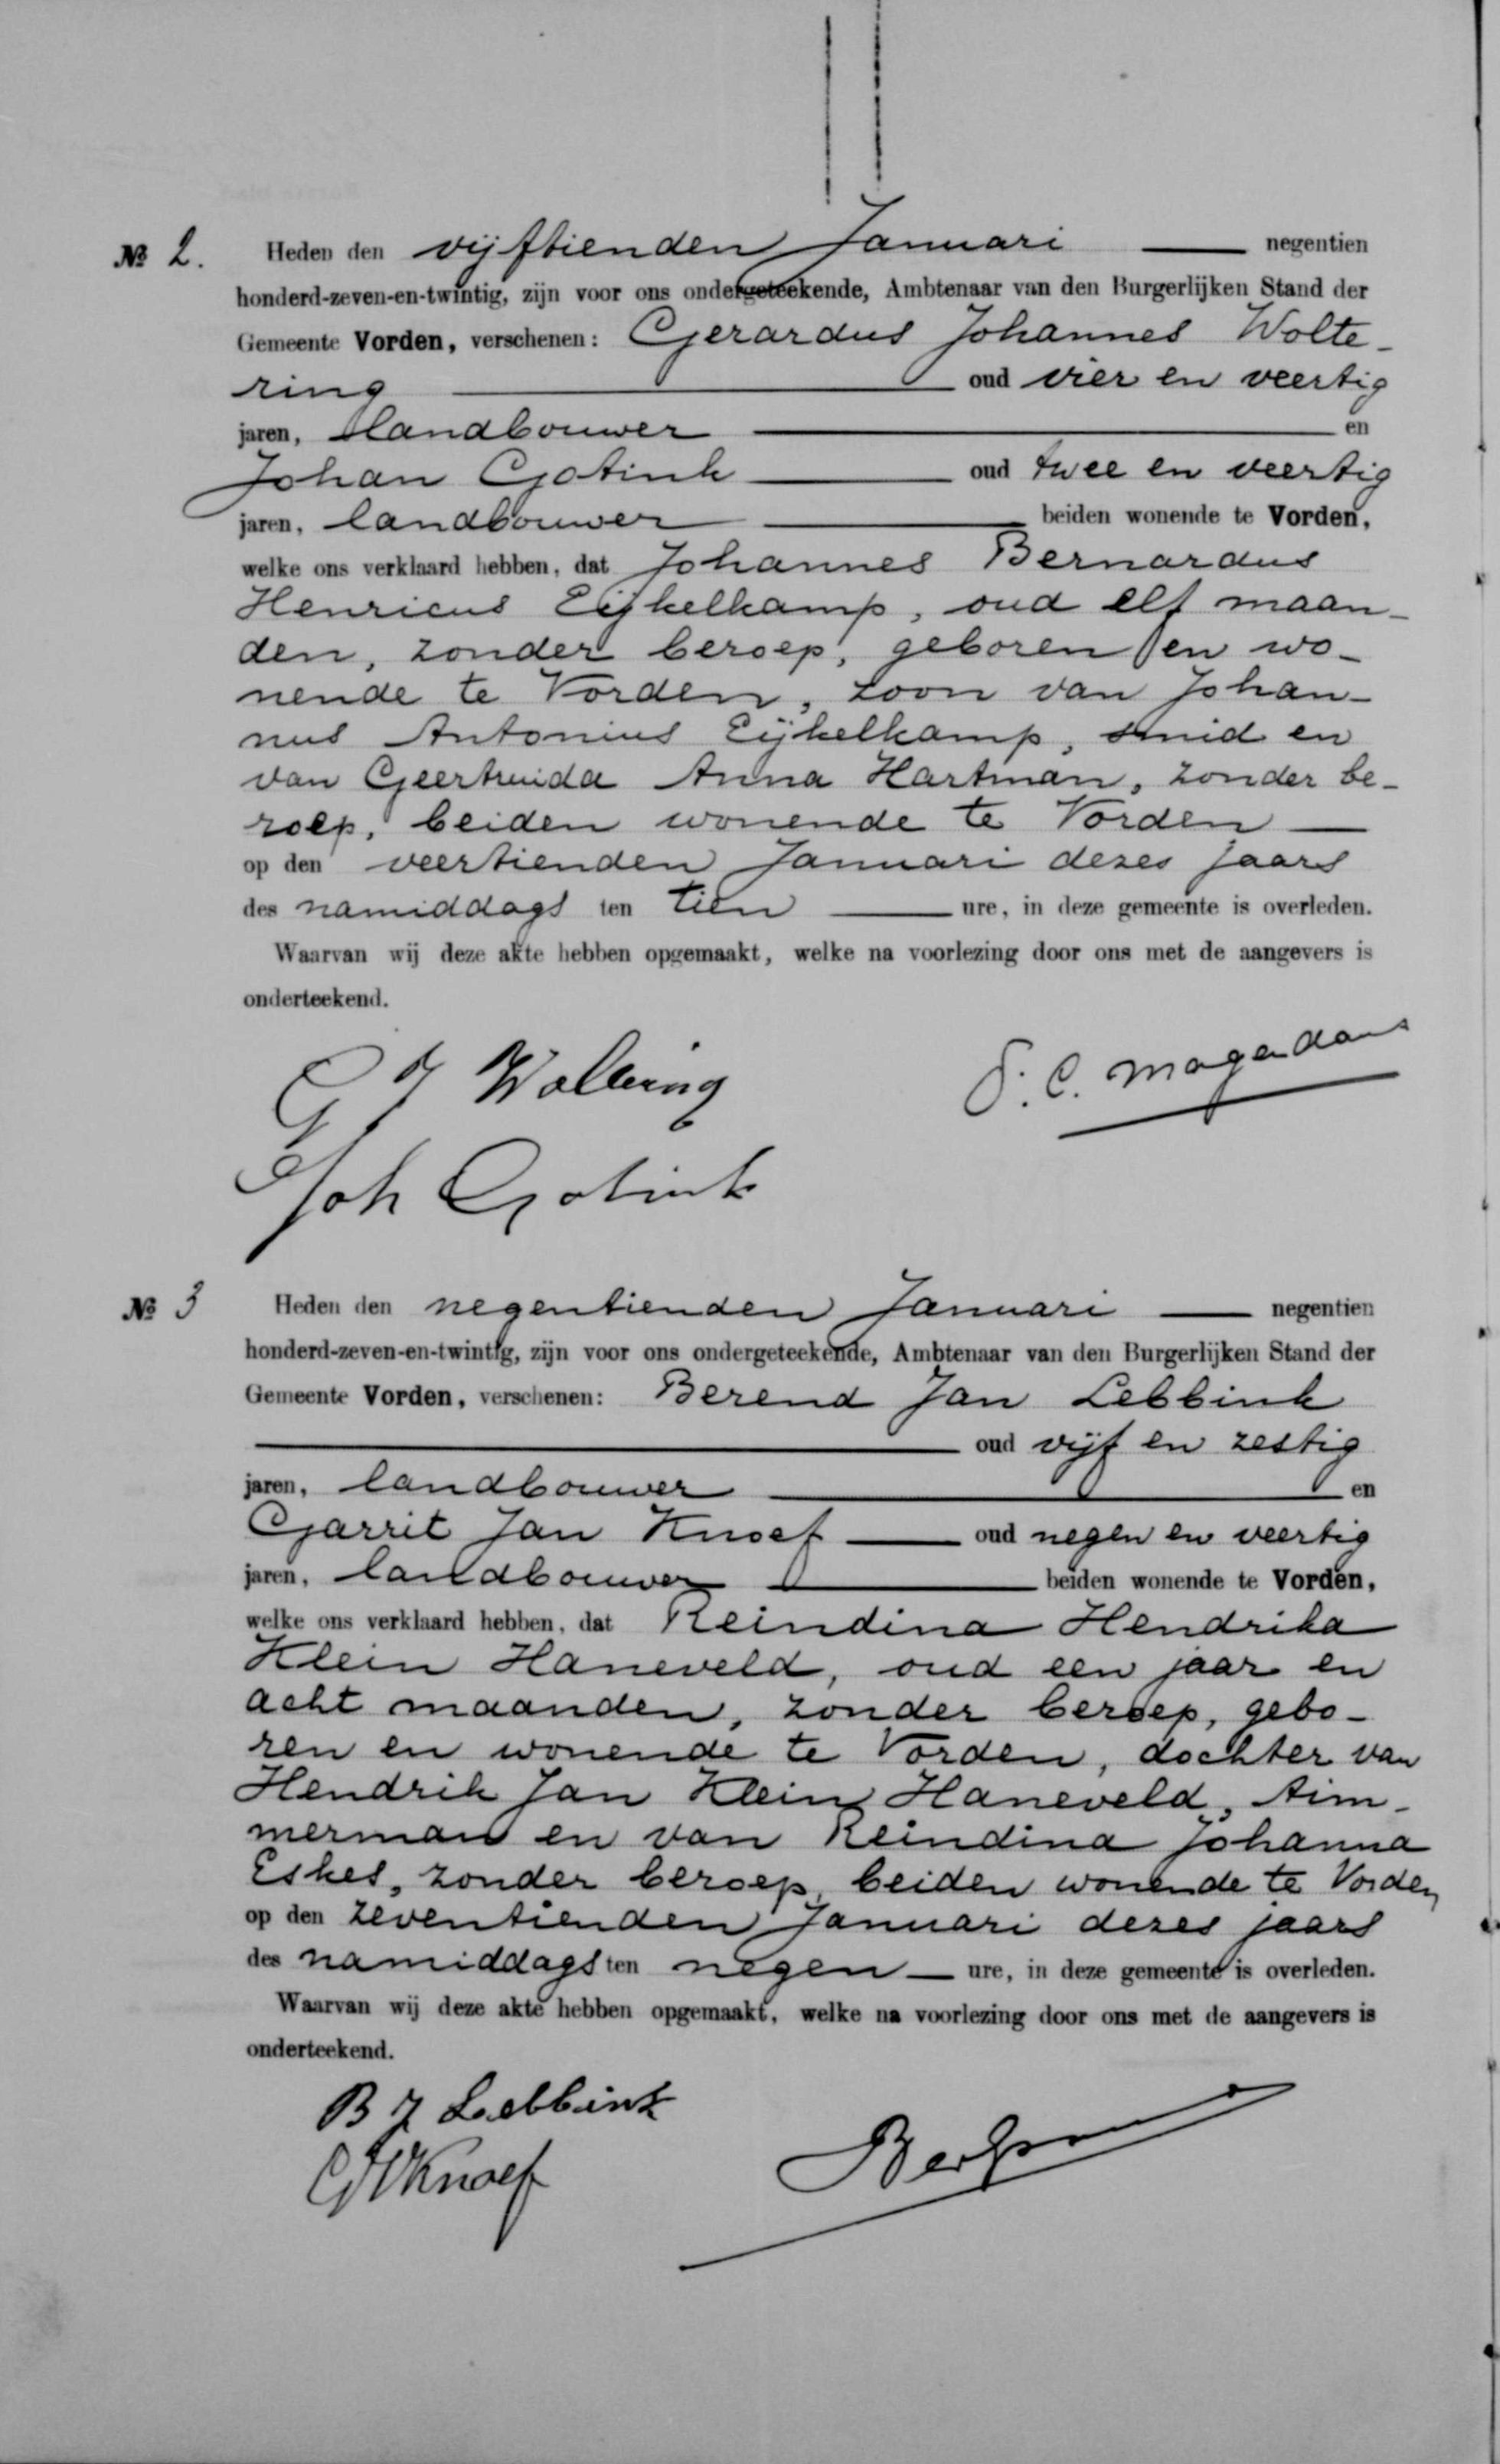 № 2. Heden den vijftienden Januari negentien
honderd-zeven-en-twintig, zijn voor ons ondergeteekende, Ambtenaar van den Burgerlijken Stand der
Gemeente Vorden, verschenen: Gerardus Johannes Wolte-
ring oud vier en veertig
jaren, landbouwer en
Johan Gotink oud twee en veertig
jaren, landbouwer beiden wonende te Vorden,
welke ons verklaard hebben, dat Johannes Bernardus
Henricus Eijkelkamp, oud elf maan-
den, zonder beroep, geboren en wo-
nende te Vorden, zoon van Johan-
nus Antonius Eijkelkamp, smid en
van Geertruida Anna Hartman, zonder be-
roep, beiden wonende te Vorden
op den veertienden Januari dezes jaars
des namiddags ten tien ure, in deze gemeente is overleden.
Waarvan wij deze akte hebben opgemaakt, welke na voorlezing door ons met de aangevers is
onderteekend.
G J Woltering
P. C. Magendans
Joh Gotink
№ 3 Heden den negentienden Januari negentien
honderd-zeven-en-twintig, zijn voor ons ondergeteekende, Ambtenaar van den Burgerlijken Stand der
Gemeente Vorden, verschenen: Berend Jan Lebbink
oud vijf en zestig
jaren, landbouwer en
Garrit Jan Knoef oud negen en veertig
jaren, landbouwer beiden wonende te Vorden,
welke ons verklaard hebben, dat Reindina Hendrika
Klein Haneveld, oud een jaar en
acht maanden, zonder beroep, gebo-
ren en wonende te Vorden, dochter van
Hendrik Jan Klein Haneveld, tim-
merman en van Reindina Johanna
Eskes, zonder beroep, beiden wonende te Vorden
op den zeventienden Januari dezes jaars
des namiddags ten negen ure, in deze gemeente is overleden.
Waarvan wij deze akte hebben opgemaakt, welke na voorlezing door ons met de aangevers is
onderteekend.
B J Lebbink
Knoef